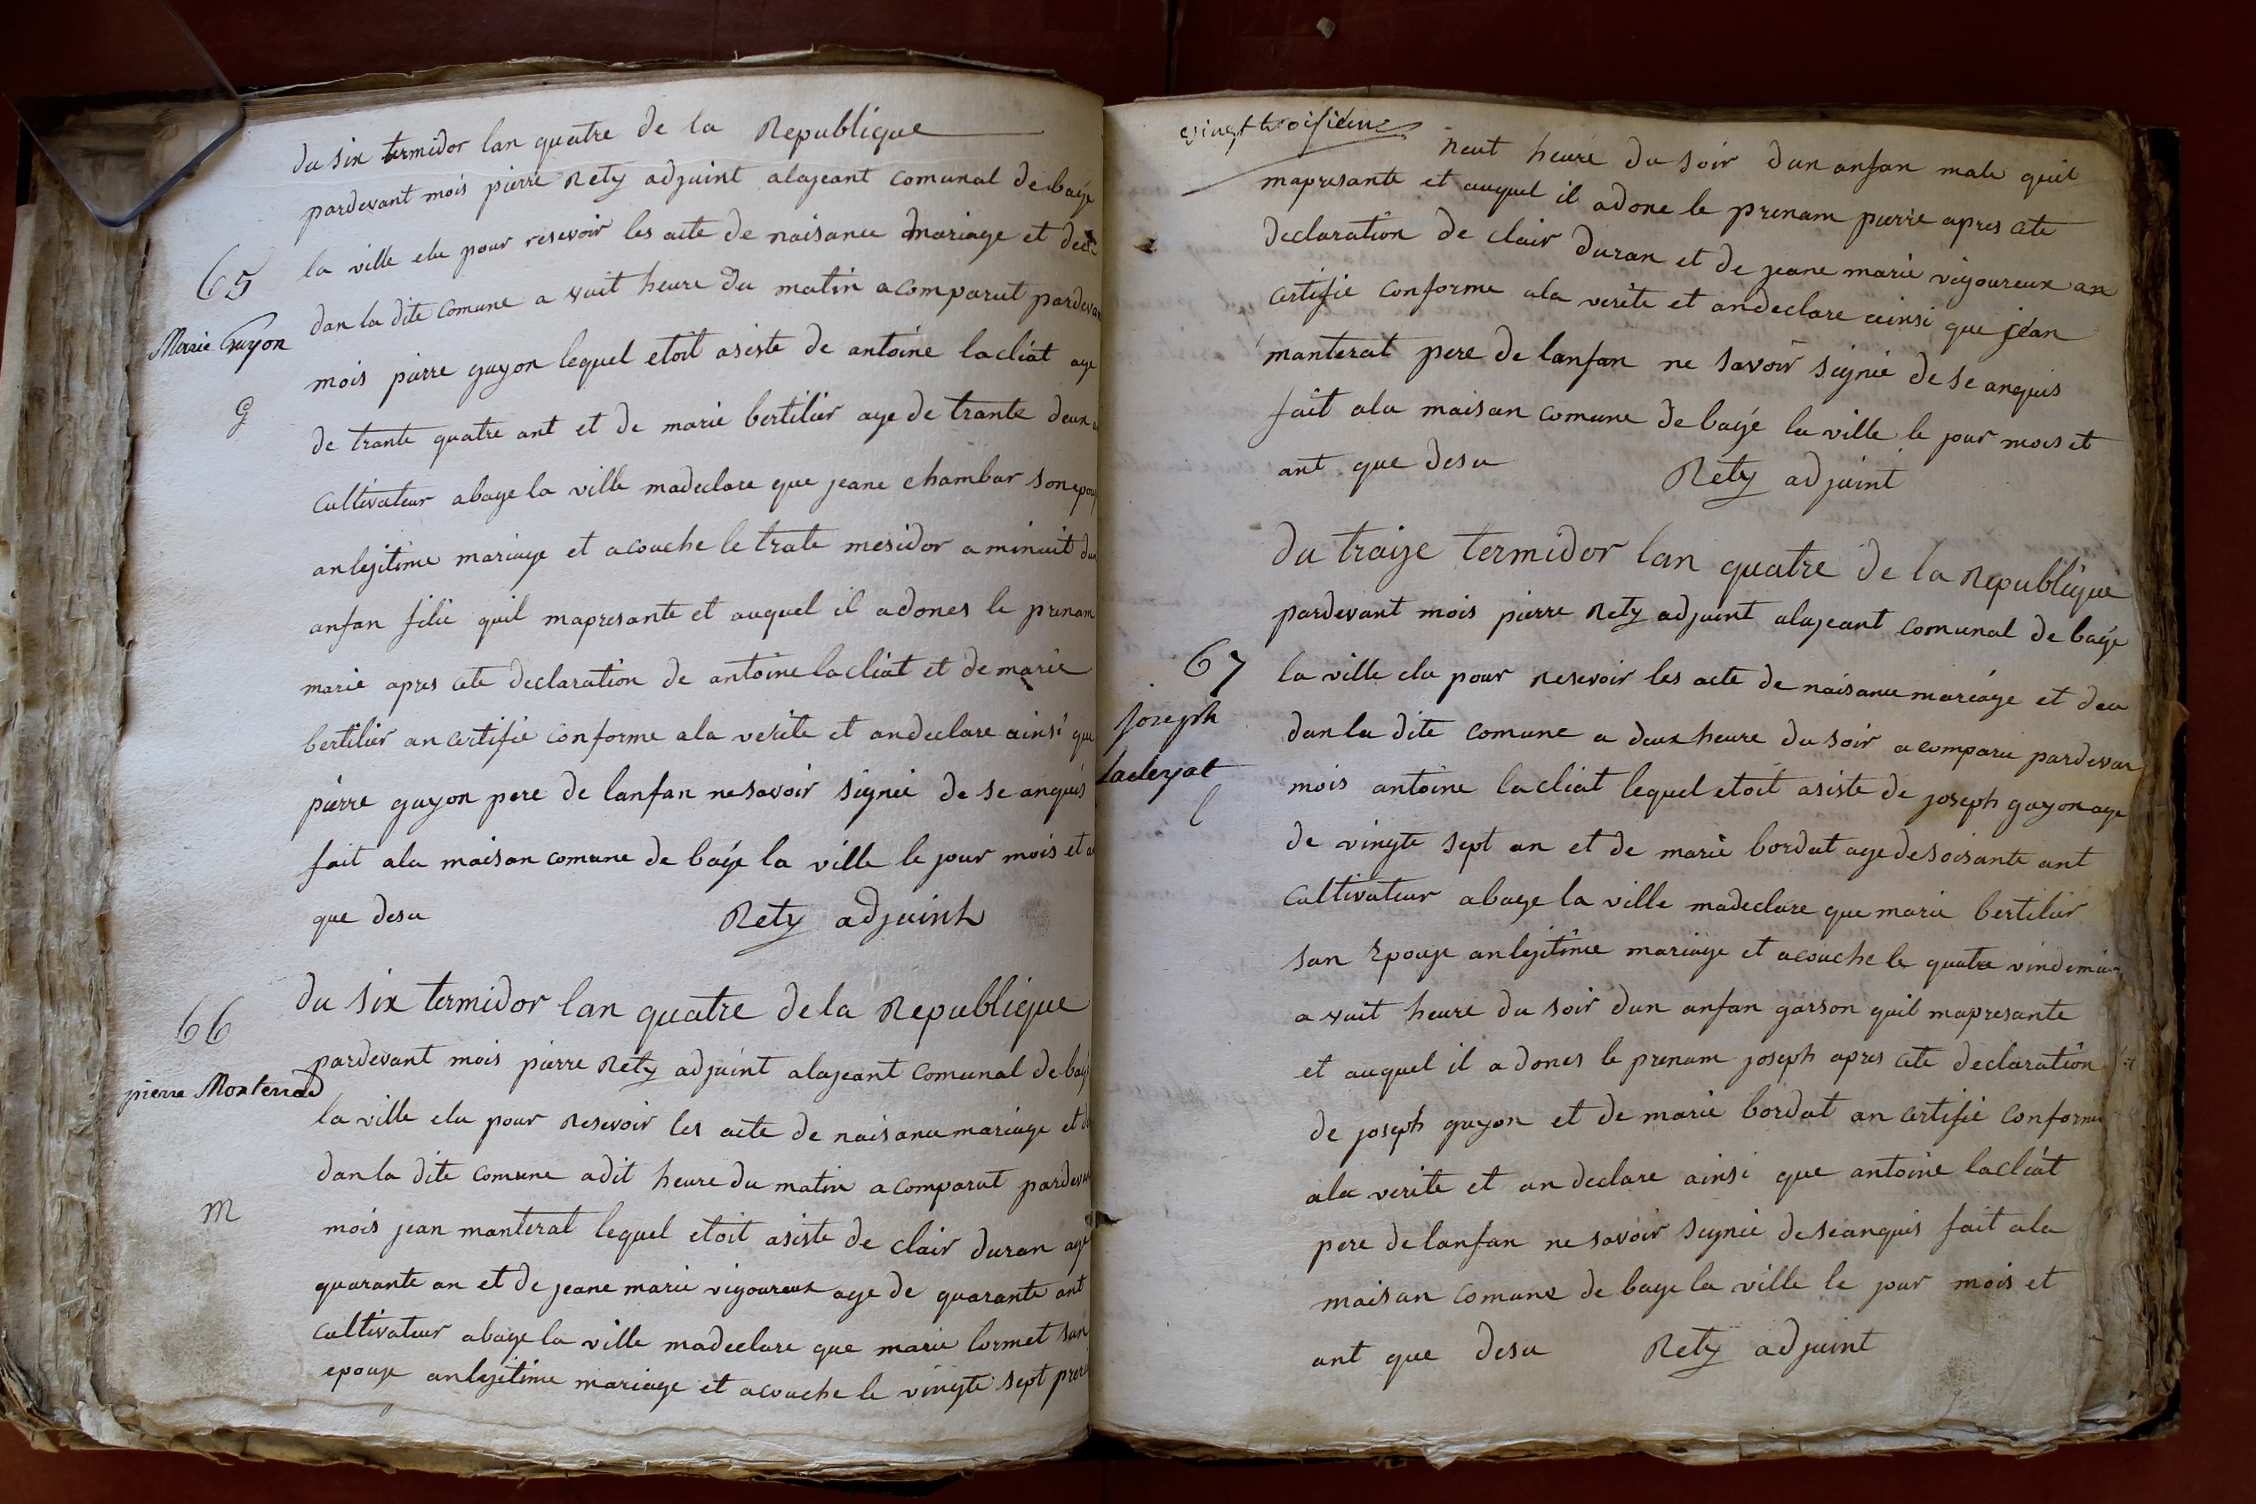 du six termidor lan quatre de la Republique
pardevant mois pierre Rety adjuint alajeant comunal de bage
la ville elu pour resevoir les acte de naisance mariage et dece
65
dan la dite comune a vuit heure du matin acomparut pardevan
Marie Guyon
mois pierre guyon lequel etoit asiste de antoine lacliat age
G
de trante quatre ant et de marie bertilier age de trante deux
cultivateur abage la ville madeclare que jeane chambar son epouse
anlejitime mariage et acouche le trate mesidor a minuit dun
anfan filie quil mapresante et auquel il adones le prenam
marie apres cete declaration de antoine lacliat et de marie
bertilier an certifie conforme ala verite et andeclare ainsi que
pierre guyon pere de lanfan nesavoir signie de se anquis
fait ala maison comune de bage la ville le jour mois et a
que desu Rety adjuint
du six termidor lan quatre dela Republique
66
pardevant mois pierre Rety adjuint alajeant comunal de bage
pierre Monterrad
la ville elu pour Resevoir les acte de naisance mariage et d
dan la dite comune adit heure du matin acomparut pardevan
M
mois jean manterat lequel etoit asiste de clair duran age
quarante an et de jeane marie vigoureux age de quarante ant
cultivateur abage la ville madeclare que marie lormet san
epouse anlejitime mariage et acouche le vingte sept prere
vingt troisieme
neut heure du soir dun anfan male quil
mapresante et auquel il adone le prenam pierre apres cete
declaration de clair duran et de jeane marie vigoureux an
certifie conforme ala verite et andeclare ainsi que jean
manterat pere de lanfan ne savoir signie de se anquis
fait ala maison comune de bage la ville le jour mois et
ant que desu Rety adjuint
du traize termidor lan quatre de la Republique
pardevant mois pierre Rety adjuint alajeant comunal de bage
67
la ville elu pour Resevoir les acte de naisance mariage et dece
joseph
dan la dite comune a deux heure du soir acomparu pardevan
lacleyat
mois antoine lacliat lequel etoit asiste de joseph guyon age
l
de vingte sept an et de marie bordat age de soisante ant
cultivateur abage la ville madeclare que marie bertilier
san Epouse anlejitime mariage et acouche le quatre vindemier
a vuit heure du soir dun anfan garson quil mapresante
et auquel il a dones le prenam joseph apres cete declaration
de joseph guyon et de marie bordat an certifie conforme
ala verite et an declare ainsi que antoine lacliat
pere de lanfan ne savoir signie deseanquis fait ala
maison comune de bage la ville le jour mois et
ant que desu Rety adjuint